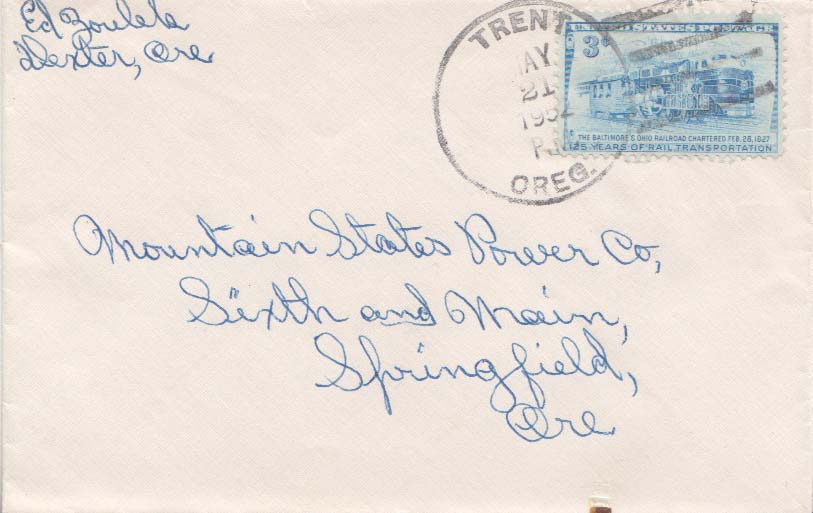 Ed
Dexter, Ore
TRENT
MAY
21
1952
OREG.
UNITED STATES POSTAGE
3¢
THE BALTIMORE & OHIO RAILROAD CHARTERED FEB. 28, 1827
125 YEARS OF RAIL TRANSPORTATION
Mountain States Power Co,
Sixth and Main,
Springfield,
Ore